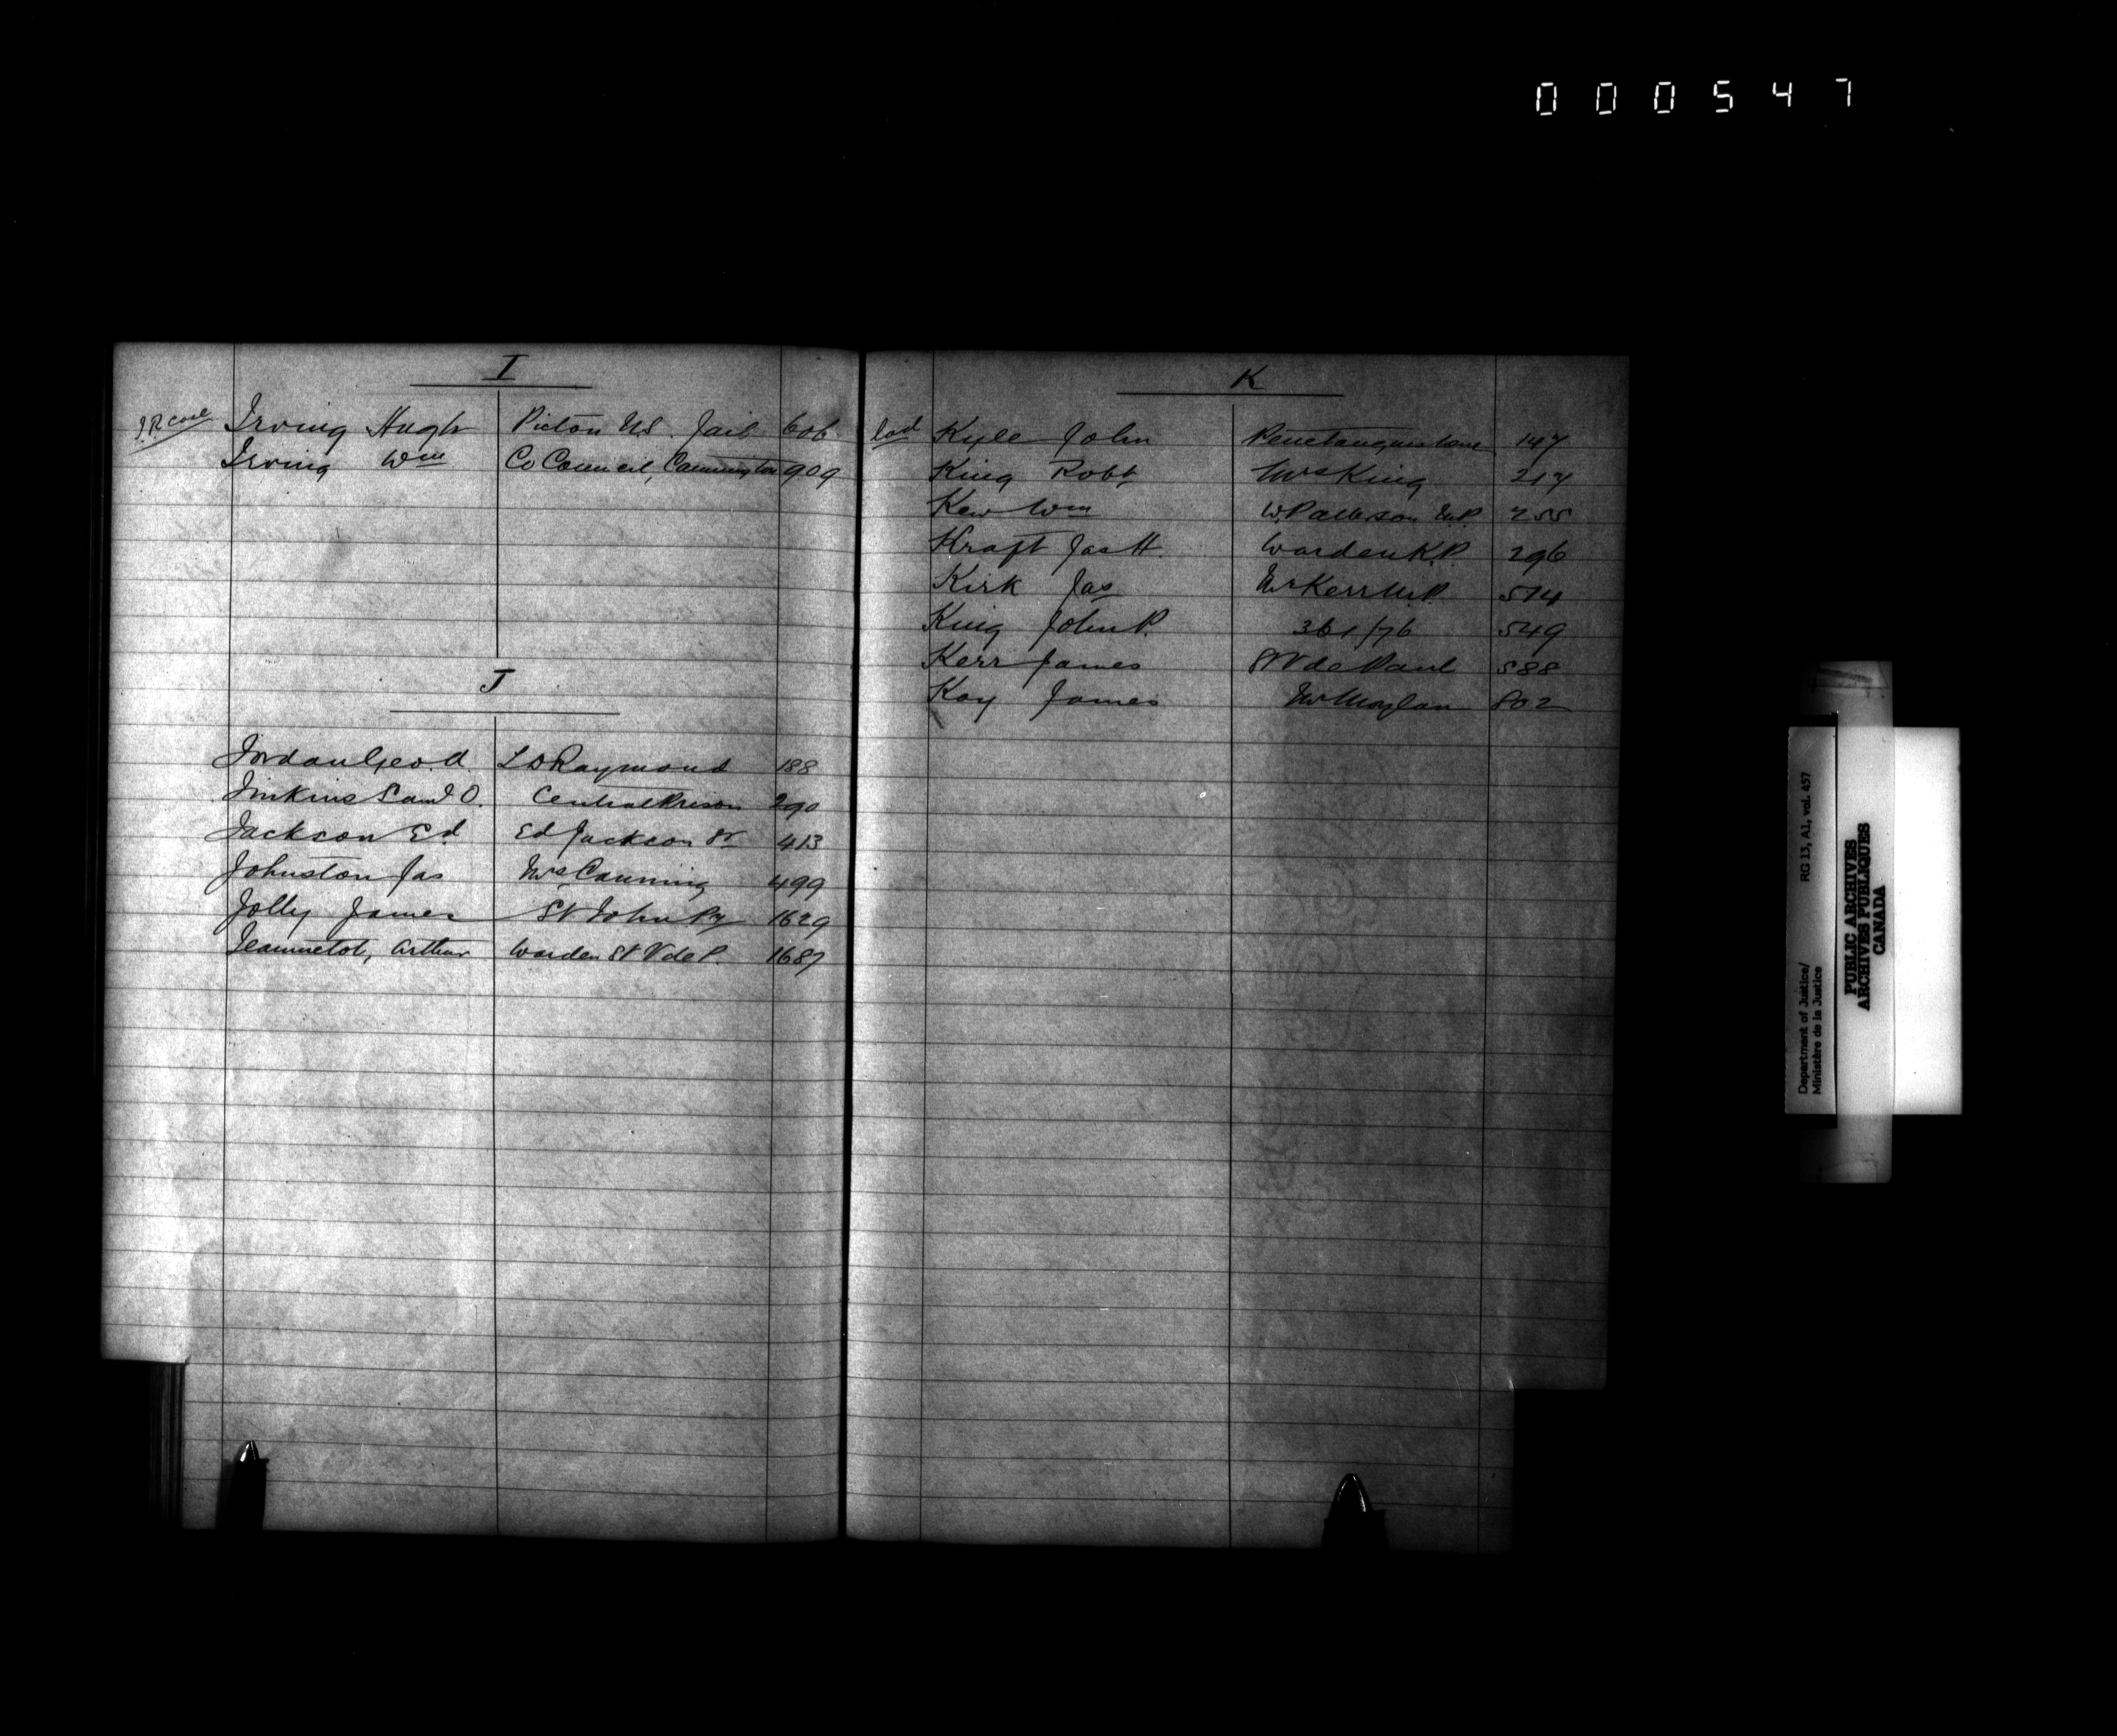 000547
I
I.R. case Irving Hugh Picton NS. Jail 606
Irving Wm Co Council, Cannington 909
J
Jordan Geo. A. L D Raymond 188
Jinkins Saml O. Central Prison 290
Jackson Ed. Ed Jackson Sr 413
Johnston Jas Mrs Canning 499
Jolly James St John Py 1629
Jeannetot, Arthur Warden St V de P. 1687
K
lad Kyle John Penetanguishene 147
King Robt Mrs King 217
Kew Wm W. Patterson M.P. 255
Kraft Jas H. Warden K.P. 296
Kirk Jas Mr Kerr M.P. 514
King John P. 361/76 549
Kerr James St V de Paul 588
Kay James Mr Moylan 802
Department of Justice/
Ministère de la Justice
RG 13, A1, vol. 457
PUBLIC ARCHIVES
ARCHIVES PUBLIQUES
CANADA